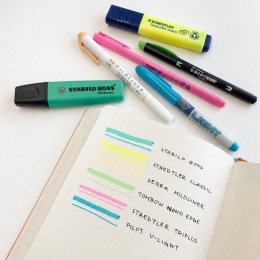 STAEDTLER
STABILO BOSS
MILDLINER
LIGHT
STABILO BOSS
STAEDTLER CLASSIC
ZEBRA MILDLINER
TOMBOW MONO EDGE
STAEDTLER TRIPLUS
PILOT V-LIGHT